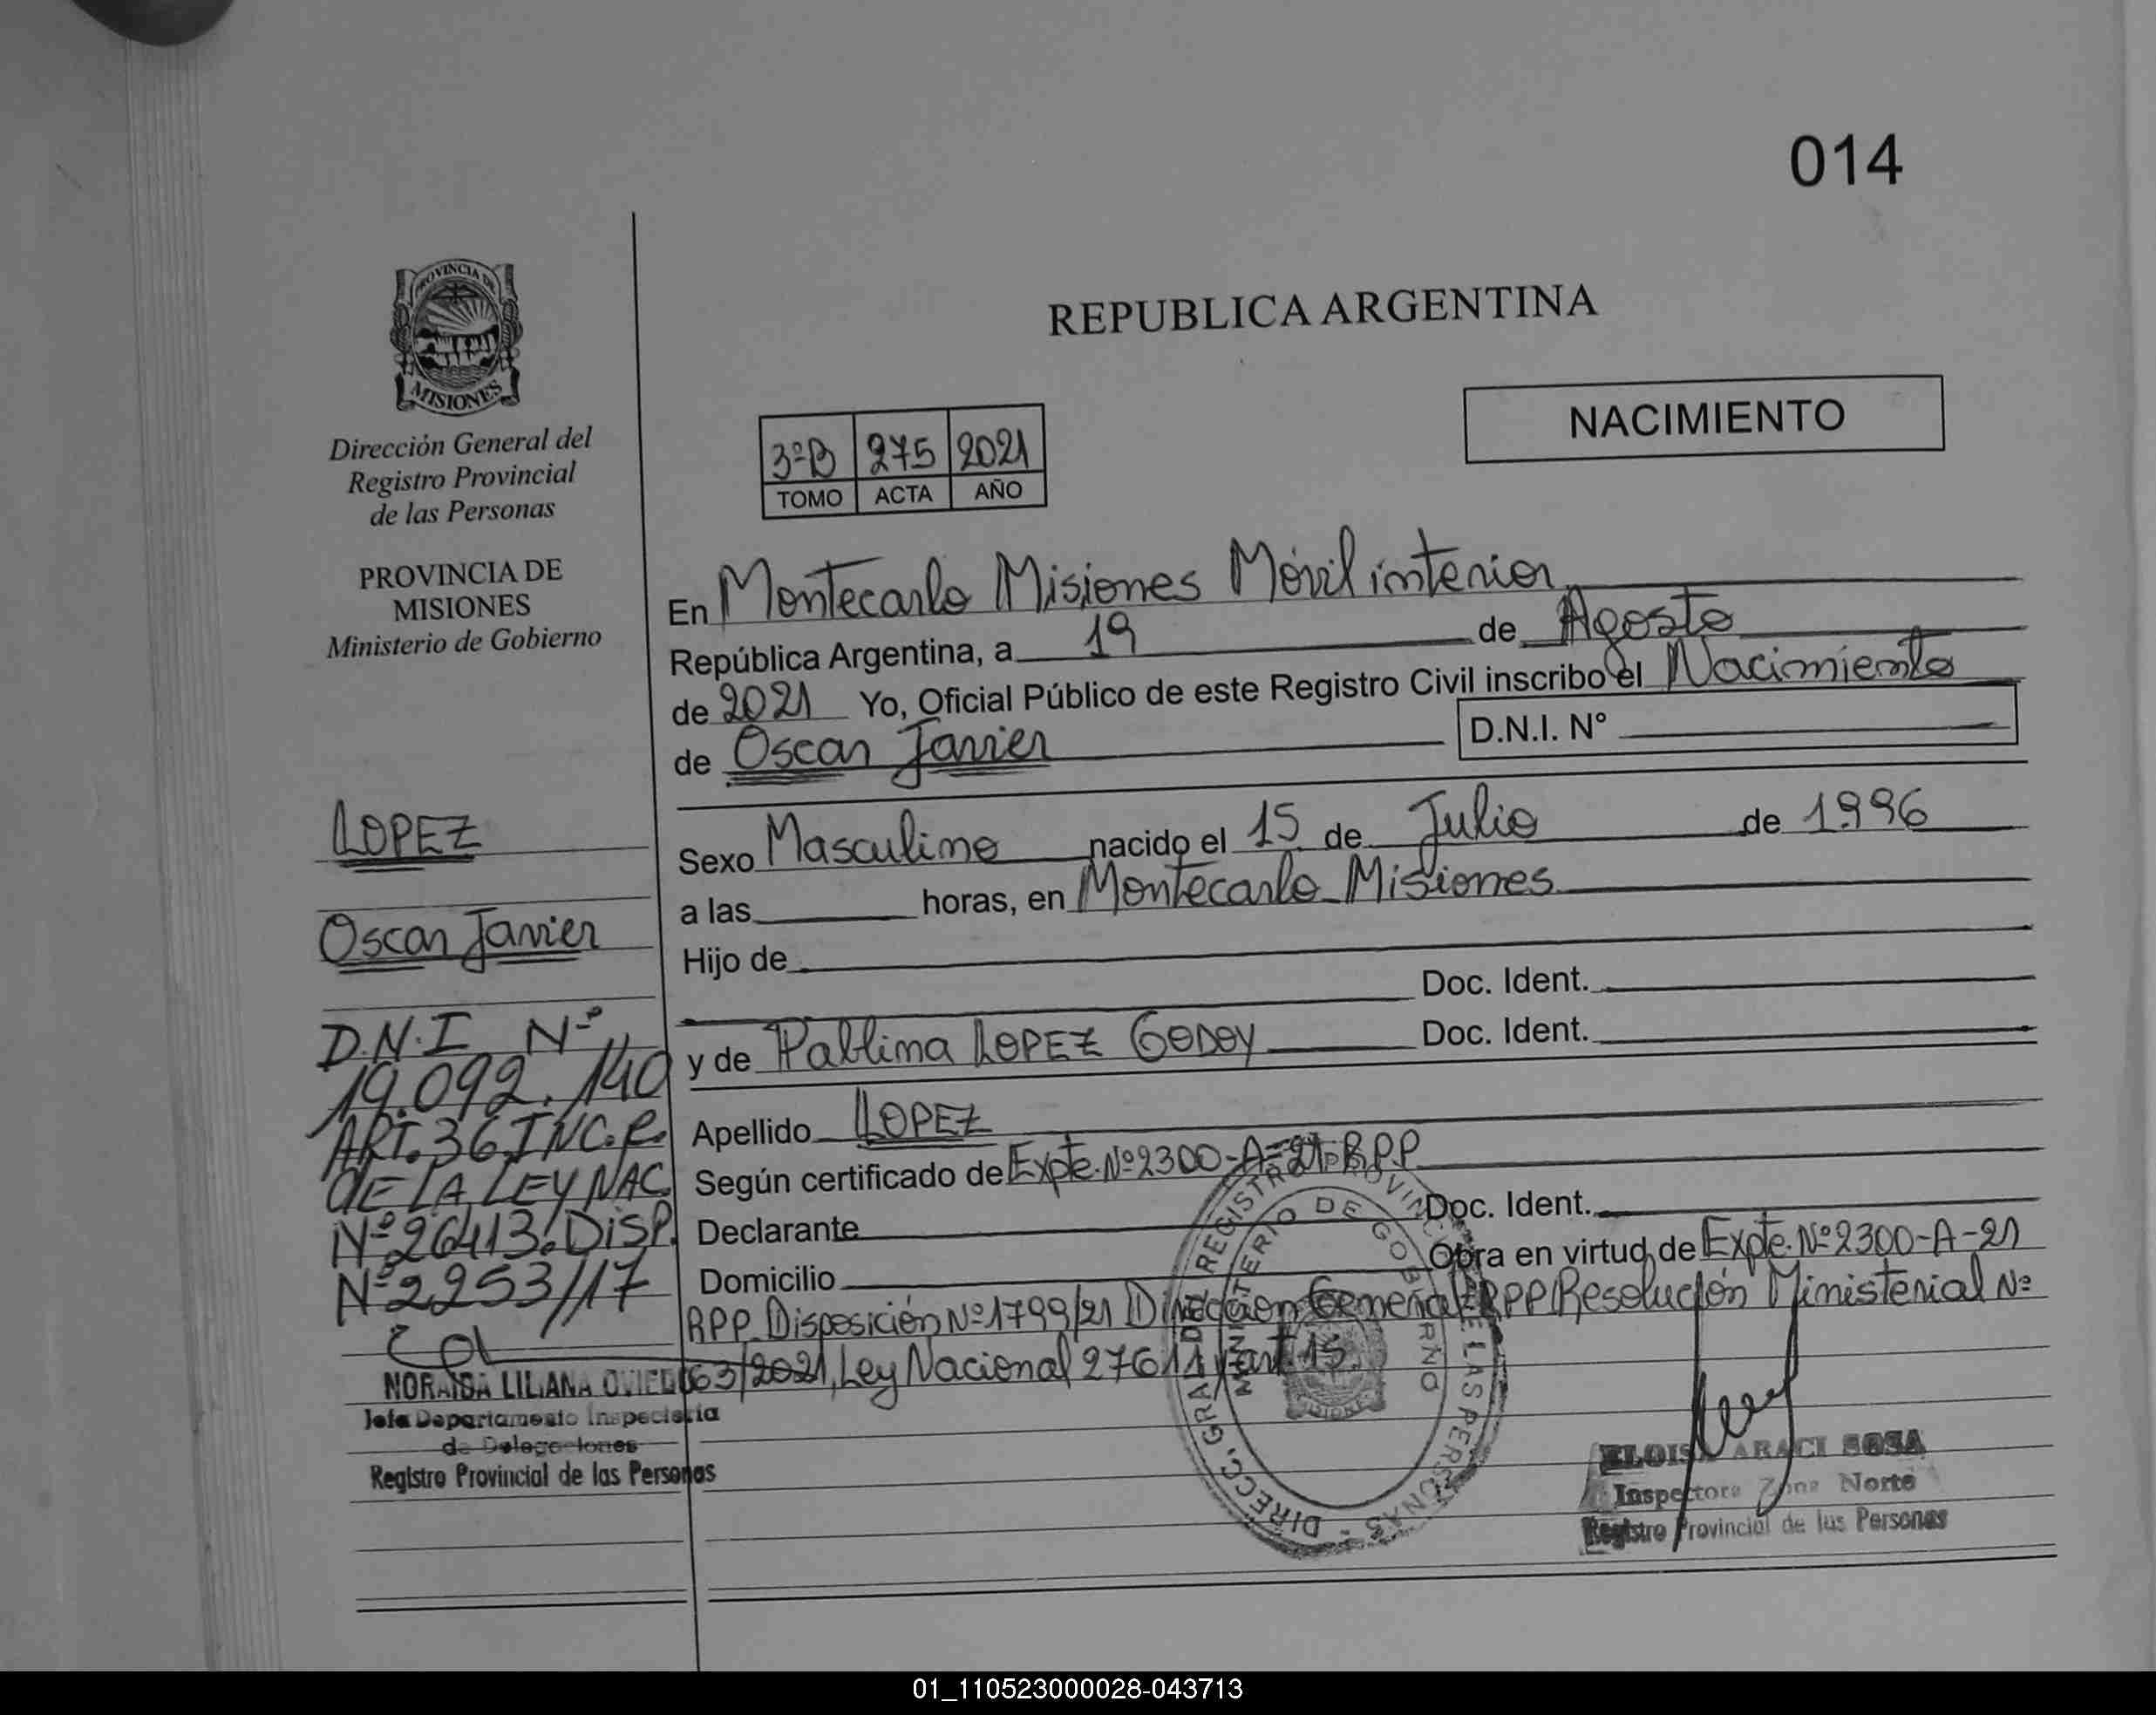 014
PROVINCIA DE
MISIONES
REPUBLICA ARGENTINA
NACIMIENTO
Dirección General del
Registro Provincial
de las Personas
PROVINCIA DE
MISIONES
Ministerio de Gobierno
3ºB 275 2021
TOMO ACTA AÑO
En Montecarlo Misiones Móvil interior
República Argentina, a 19 de Agosto
de 2021 Yo, Oficial Público de este Registro Civil inscribo el Nacimiento
de Oscar Javier D.N.I. N°
Sexo Masculino nacido el 15 de Julio de 1996
a las horas, en Montecarlo Misiones
Hijo de
Doc. Ident.
y de Pablina LOPEZ GODOY Doc. Ident.
Apellido LOPEZ
Según certificado de Expte. Nº 2300-A-21-R.P.P
Declarante Doc. Ident.
Domicilio Obra en virtud de Expte. Nº 2300-A-21
RPP Disposición Nº 1799/21 Dirección General RPP Resolución Ministerial Nº
63/2021, Ley Nacional 27611 y art 15.
LOPEZ
Oscar Javier
D.N.I Nº
19.092.140
ART. 36 INC. C.
DE LA LEY NAC
Nº 26413. DISP.
Nº 2253/17
NORAIDA LILIANA OVIEDO
Jefa Departamento Inspectoria
de Delegaciones
Registro Provincial de las Personas
DIRECC. GRAL. DE REGISTRO PROVINCIAL DE LAS PERSONAS
MINISTERIO DE GOBIERNO
MISIONES
ELOISA ARACI SOSA
Inspectora Zona Norte
Registro Provincial de las Personas
01_110523000028-043713